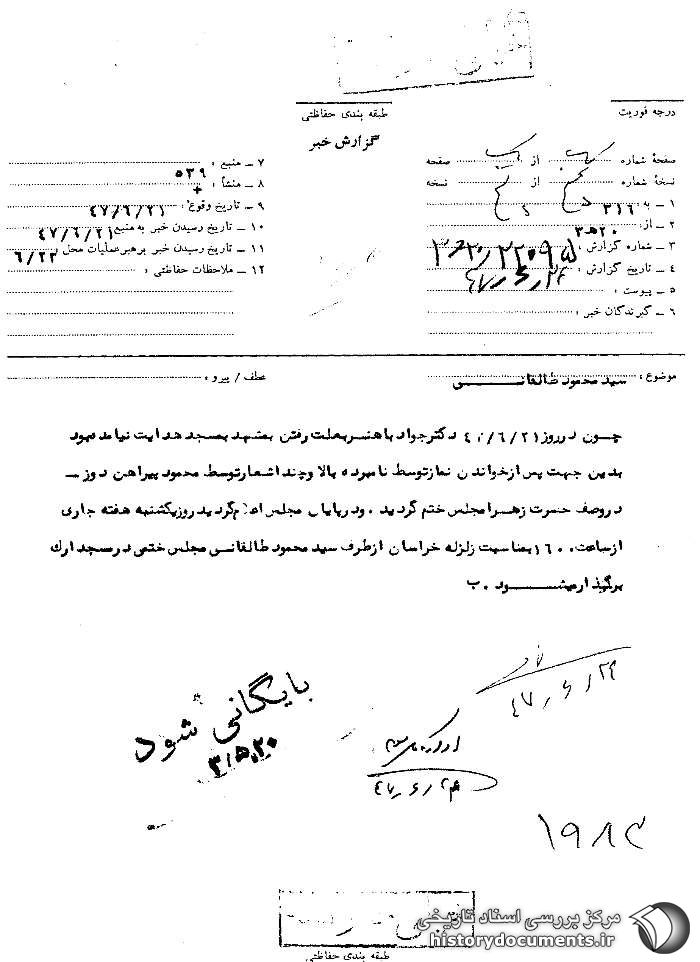 درجه فوریت
طبقه بندی حفاظتی
گزارش خبر
صفحهٔ شماره : یک از یک صفحه
نسخهٔ شماره از نسخه
۱ ـ به : ۳۱۶
۲ ـ از: ۲۰ ﻫ ۳
۳ ـ شماره گزارش :
۴ ـ تاریخ گزارش : ۴۷٫۶٫۲۴
۵ ـ پیوست :
۶ ـ گیرندگان خبر :
۷ ـ منبع : ۵۳۹
۸ ـ منشأ : +
۹ ـ تاریخ وقوع : ۴۷/۶/۲۱
۱۰ ـ تاریخ رسیدن خبر به منبع ۴۷/۶/۲۱
۱۱ ـ تاریخ رسیدن خبر برهبر عملیات محل ۶/۲۳
۱۲ ـ ملاحظات حفاظتی :
موضوع : سید محمود طالقانی
عطف / پیرو :
چون در روز ۲۱/۶/ دکتر جواد باهنر بعلت رفتن بمشهد بمسجد هدایت نیامده بود
بدین جهت پس از خواندن نماز توسط نامبرده بالا و چند اشعار توسط محمود پیراهن دوز ـ
در وصف حضرت زهرا مجلس ختم گردید . و در پایان مجلس اعلام گردید روز یکشنبه هفته جاری
از ساعت ۱۶۰۰ بمناسبت زلزله خراسان از طرف سید محمود طالقانی مجلس ختمی در مسجد ارك
برگذار میشود . ب
۴۷٫۶٫۲۴
بایگانی شود
۴۷٫۶٫۲۴
۱۹۸۳
مرکز بررسی اسناد تاریخی
historydocuments.ir
طبقه بندی حفاظتی